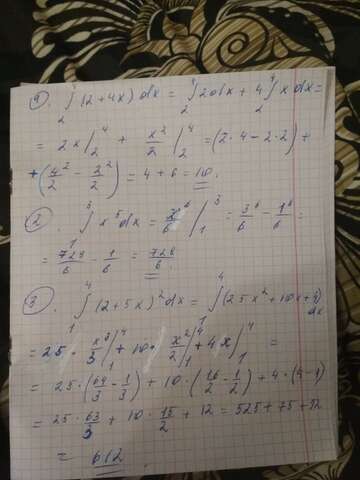 1). ∫₂⁴ (2+4x) dx = ∫₂⁴ 2dx + 4∫₂⁴ x dx =
= 2x |₂⁴ + x²/2 |₂⁴ = (2·4 - 2·2) +
+ (4²/2 - 2²/2) = 4 + 6 = 10.
2. ∫₁³ x⁵ dx = x⁶/6 |₁³ = 3⁶/6 - 1⁶/6 =
= 729/6 - 1/6 = 728/6.
3. ∫₁⁴ (2+5x)² dx = ∫₁⁴ (25x² + 10x + 4) dx
= 25 · x³/3 |₁⁴ + 10 · x²/2 |₁⁴ + 4x |₁⁴ =
= 25 · (64/3 - 1/3) + 10 · (16/2 - 1/2) + 4 · (4-1)
= 25 · 63/3 + 10 · 15/2 + 12 = 525 + 75 + 12
= 612